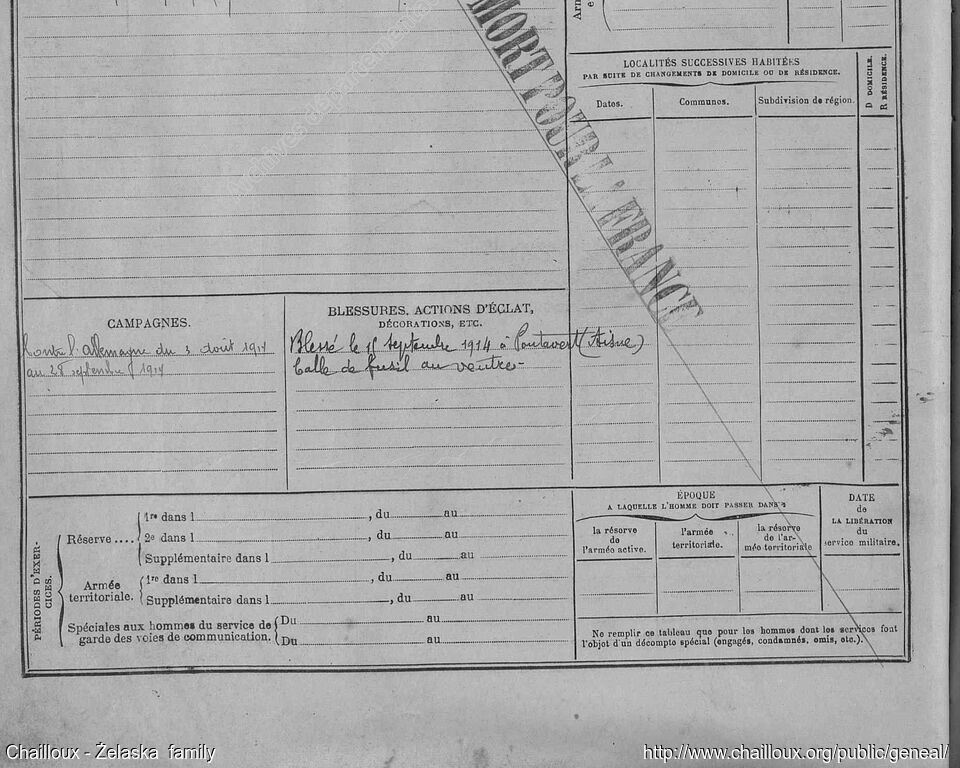 MORT POUR LA FRANCE
LOCALITÉS SUCCESSIVES HABITÉES
PAR SUITE DE CHANGEMENTS DE DOMICILE OU DE RÉSIDENCE.
D DOMICILE.
R RÉSIDENCE.
Dates.
Communes.
Subdivision de région.
CAMPAGNES.
Contre l'Allemagne du 3 août 1914
au 28 septembre 1914
BLESSURES, ACTIONS D'ÉCLAT,
DÉCORATIONS, ETC.
Blessé le septembre 1914 à Pontavert (Aisne)
balle de fusil au ventre
PÉRIODES D'EXER-
CICES.
Réserve ....
1re dans l , du au
2e dans l , du au
Supplémentaire dans l , du au
Armée
territoriale.
1re dans l , du au
Supplémentaire dans l , du au
Spéciales aux hommes du service de
garde des voies de communication.
Du au
Du au
ÉPOQUE
A LAQUELLE L'HOMME DOIT PASSER DANS
la réserve
de
l'armée active.
l'armée
territoriale.
la réserve
de l'ar-
mée territoriale
DATE
de
LA LIBÉRATION
du
service militaire.
Ne remplir ce tableau que pour les hommes dont les services font
l'objet d'un décompte spécial (engagés, condamnés, omis, etc.).
Chailloux - Żelaska family
http://www.chailloux.org/public/geneal/